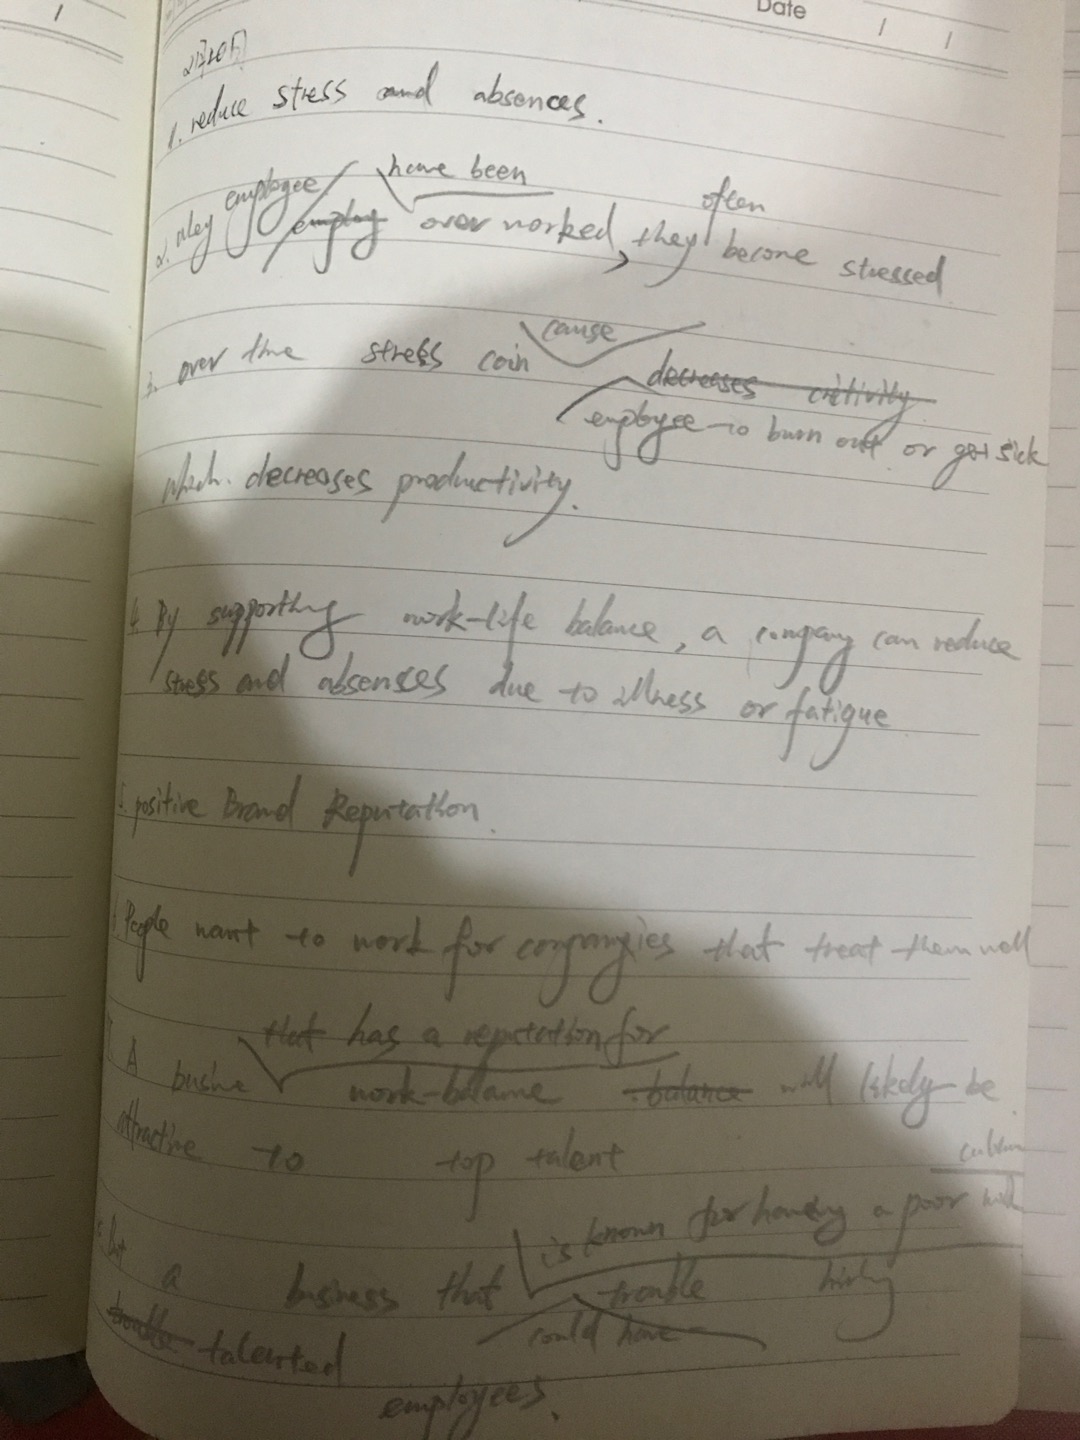 Date / /
1. reduce stress and absences.
employee have been often
2. employ over worked, they become stressed
cause
3. over time stress coin decreases
employee to burn out or get sick
which. decreases productivity.
4. By supporting work-life balance, a company can reduce
stress and absenses due to illness or fatigue
5. positive Brand Reputation.
People want to work for compangies that treat them well
that has a reputation for
7. A busine work-balance balance will likely be
attractive to top talent
is known for having a poor
a business that trouble hiring
could have
trouble talented
employees.